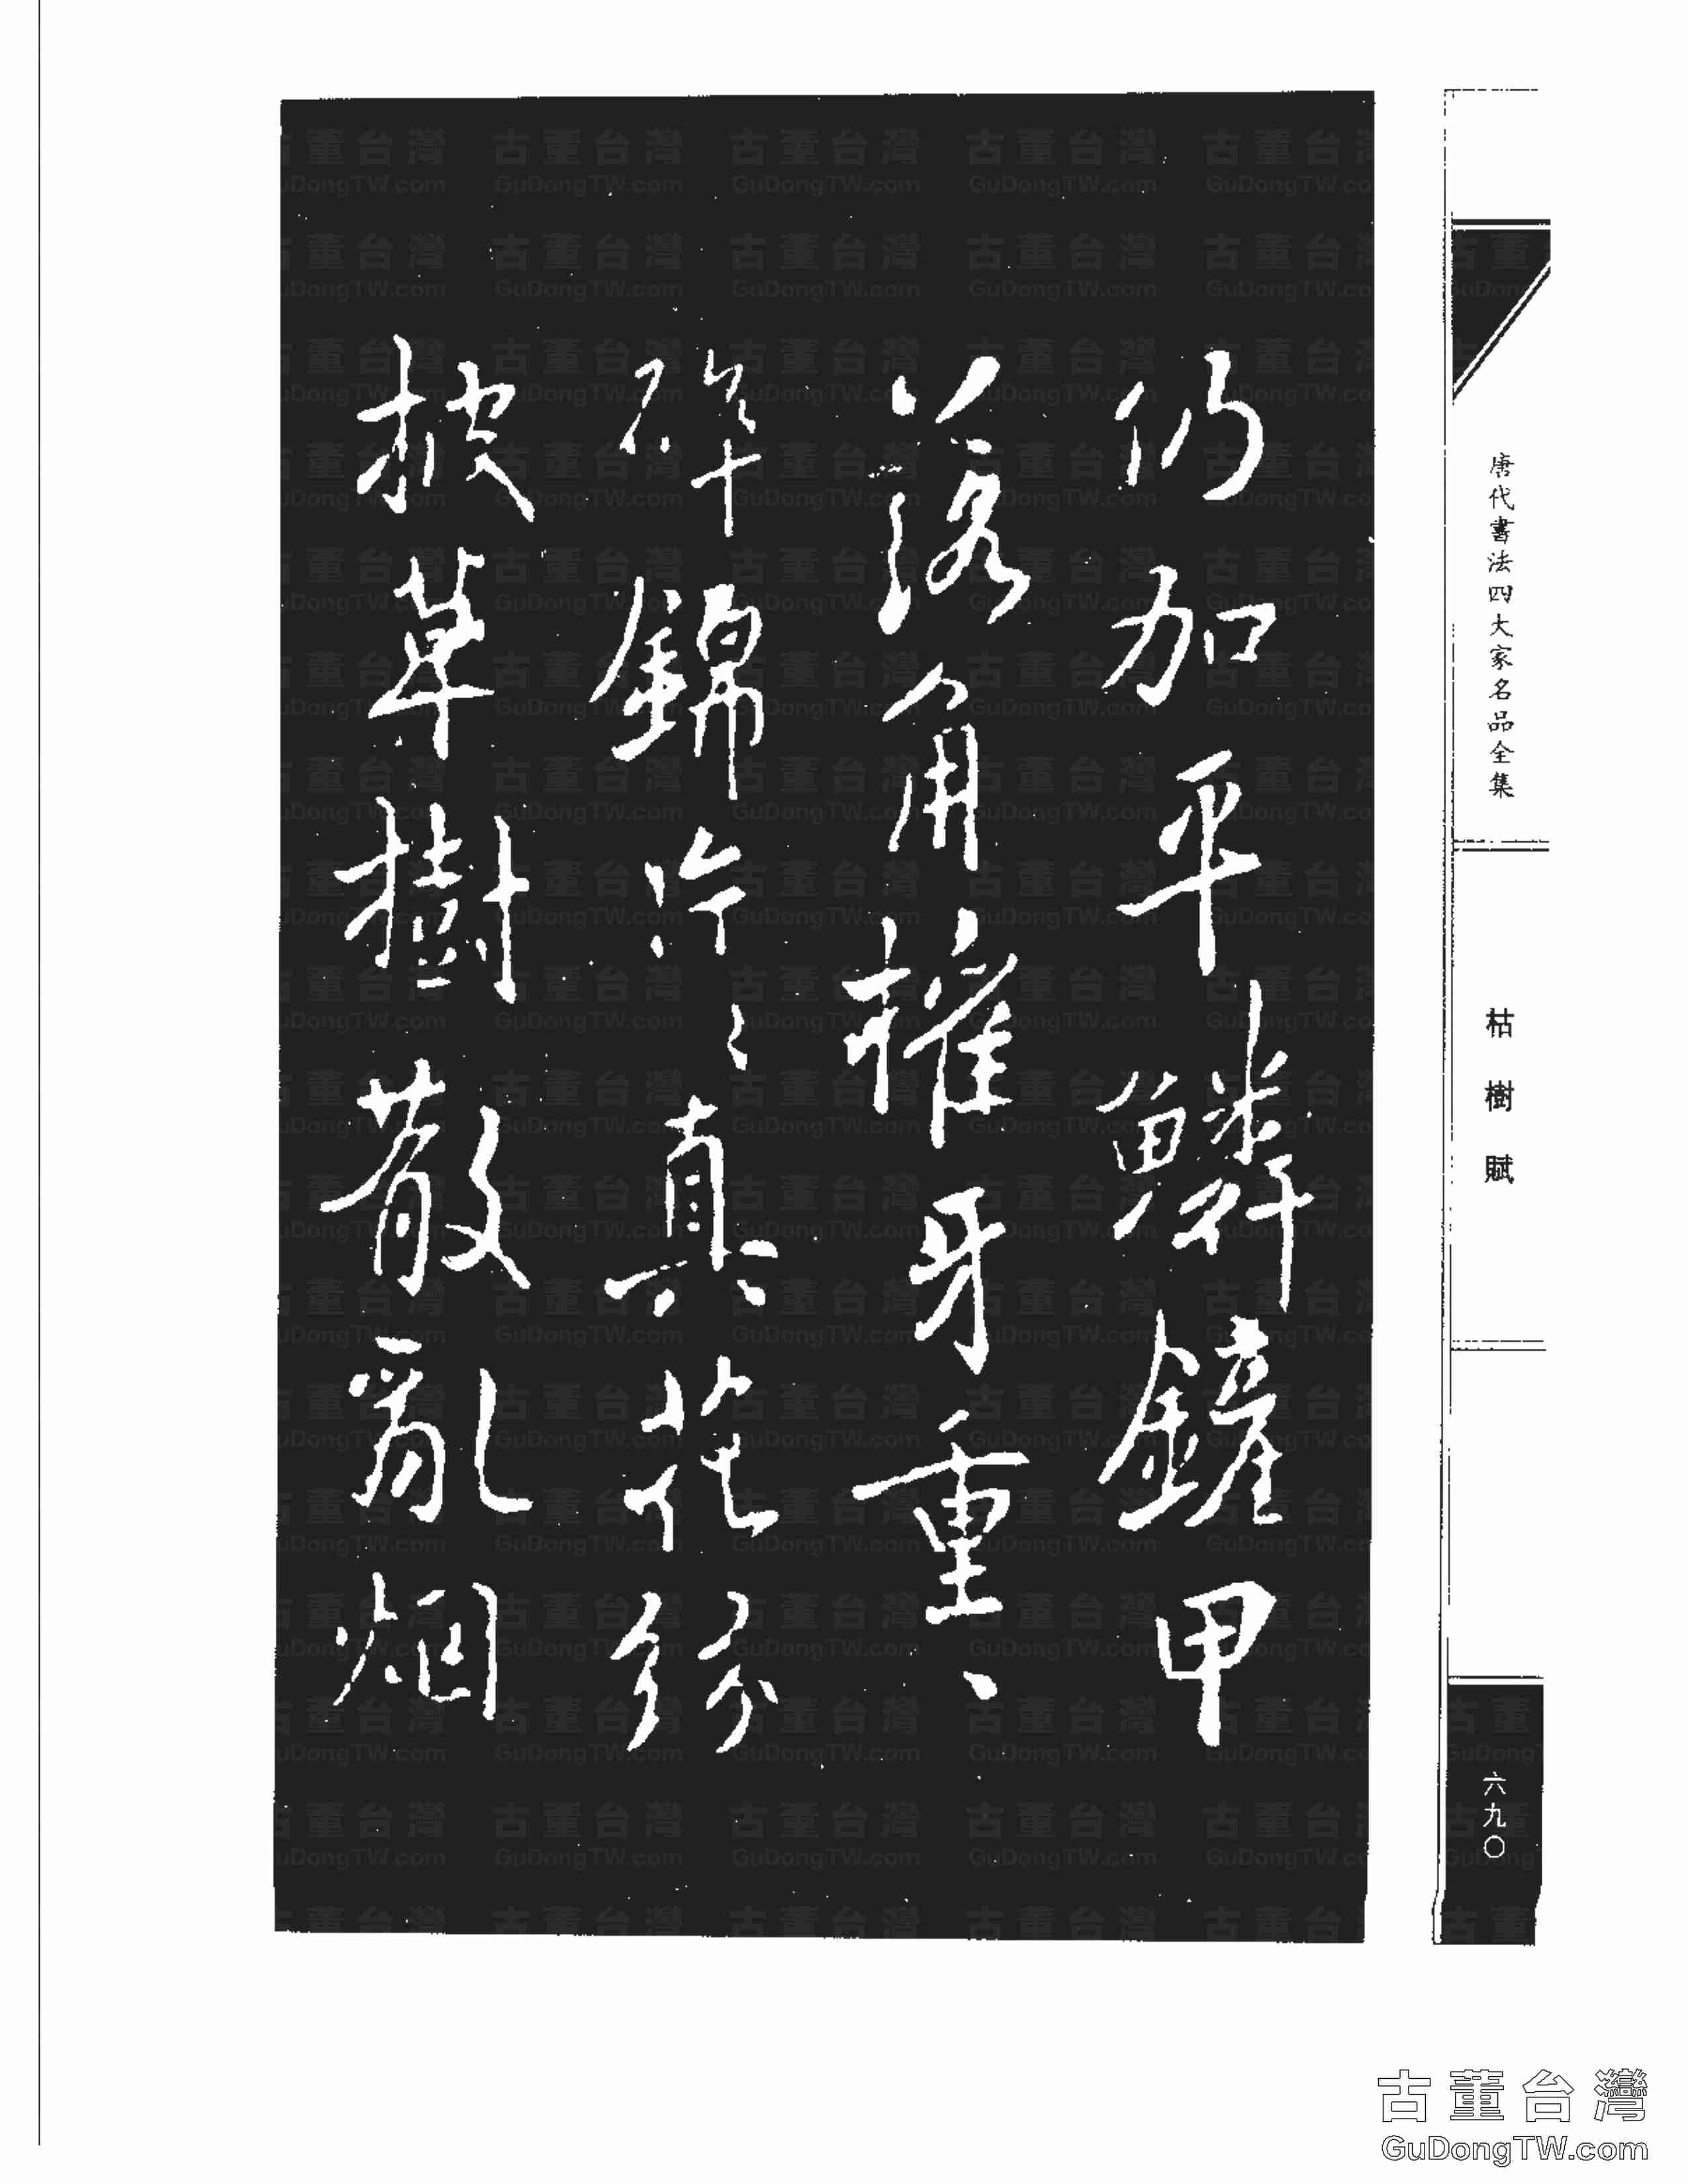 仍加平鱗鏟甲
落角摧牙重〻
碎錦片〻真花紛
披草樹散亂烟
唐代書法四大家名品全集
枯樹賦
六九〇
古董台灣
GuDongTW.com